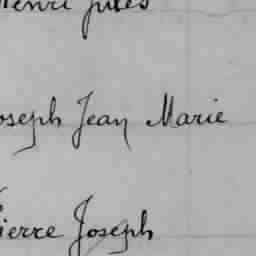 Henri Jules
Joseph Jean Marie
Pierre Joseph